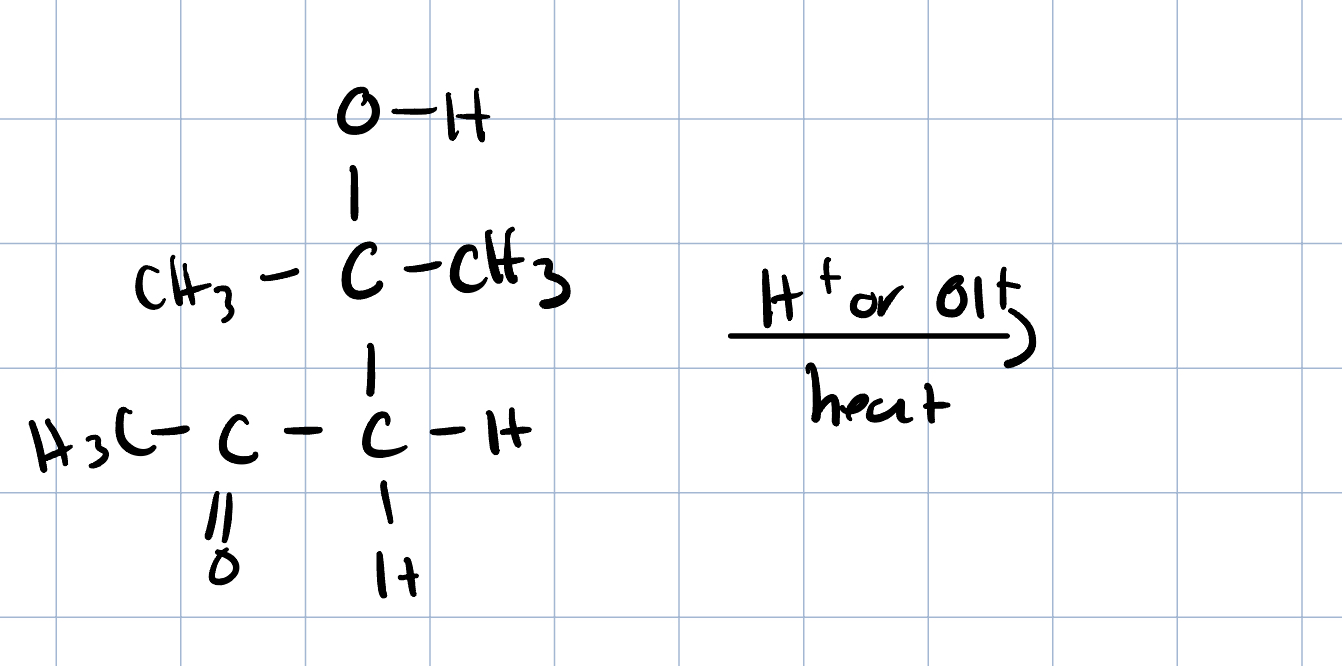 O-H
|
CH3 - C - CH3
|
H3C - C - C - H
|| |
O H
H+ or OH
heat